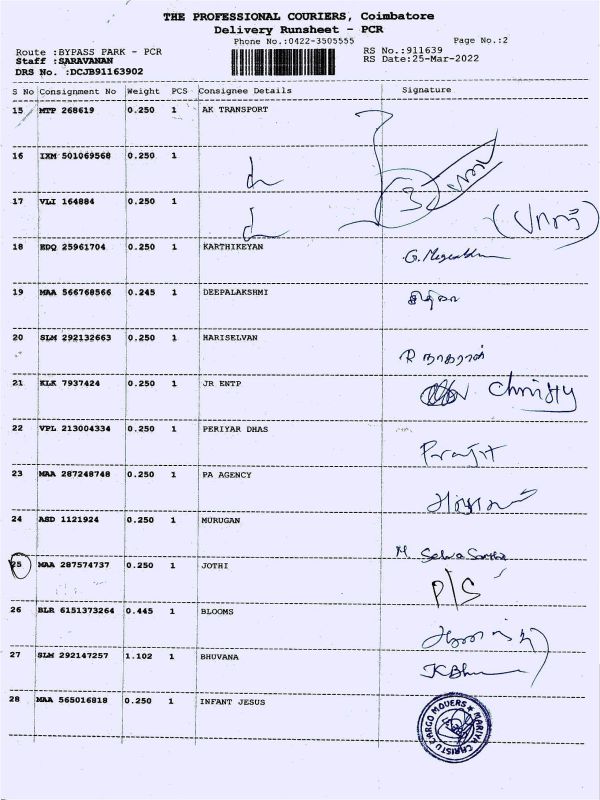 THE PROFESSIONAL COURIERS, Coimbatore
Delivery Runsheet - PCR
Phone No.:0422-3505555 Page No.:2
Route :BYPASS PARK - PCR RS No.:911639
Staff :SARAVANAN RS Date:25-Mar-2022
DRS No. :DCJB91163902
S No Consignment No Weight PCS Consignee Details Signature
15 MTP 268619 0.250 1 AK TRANSPORT
16 IXM 501069568 0.250 1
17 VLI 164884 0.250 1
18 EDQ 25961704 0.250 1 KARTHIKEYAN
19 MAA 566768566 0.245 1 DEEPALAKSHMI
20 SLM 292132663 0.250 1 HARISELVAN
21 KLK 7937424 0.250 1 JR ENTP Christy
22 VPL 213004334 0.250 1 PERIYAR DHAS
23 MAA 287248748 0.250 1 PA AGENCY
24 ASD 1121924 0.250 1 MURUGAN
25 MAA 287574737 0.250 1 JOTHI P/S
26 BLR 6151373264 0.445 1 BLOOMS
27 SLM 292147257 1.102 1 BHUVANA
28 MAA 565016818 0.250 1 INFANT JESUS
MARIYA CHRISTU CARGO MOVERS